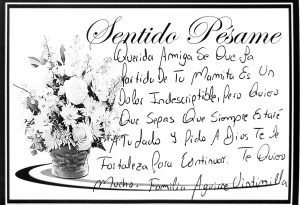 Sentido Pésame
Querida Amiga Se Que la
Partida De Tu Mamita Es Un
Dolor Indescriptible, Pero Quiero
Que Sepas Que Siempre Estaré
A Tu lado y Pido A Dios Te De
Fortaleza Para Continuar. Te Quiero
Mucho. Familia Aguirre Vintimilla